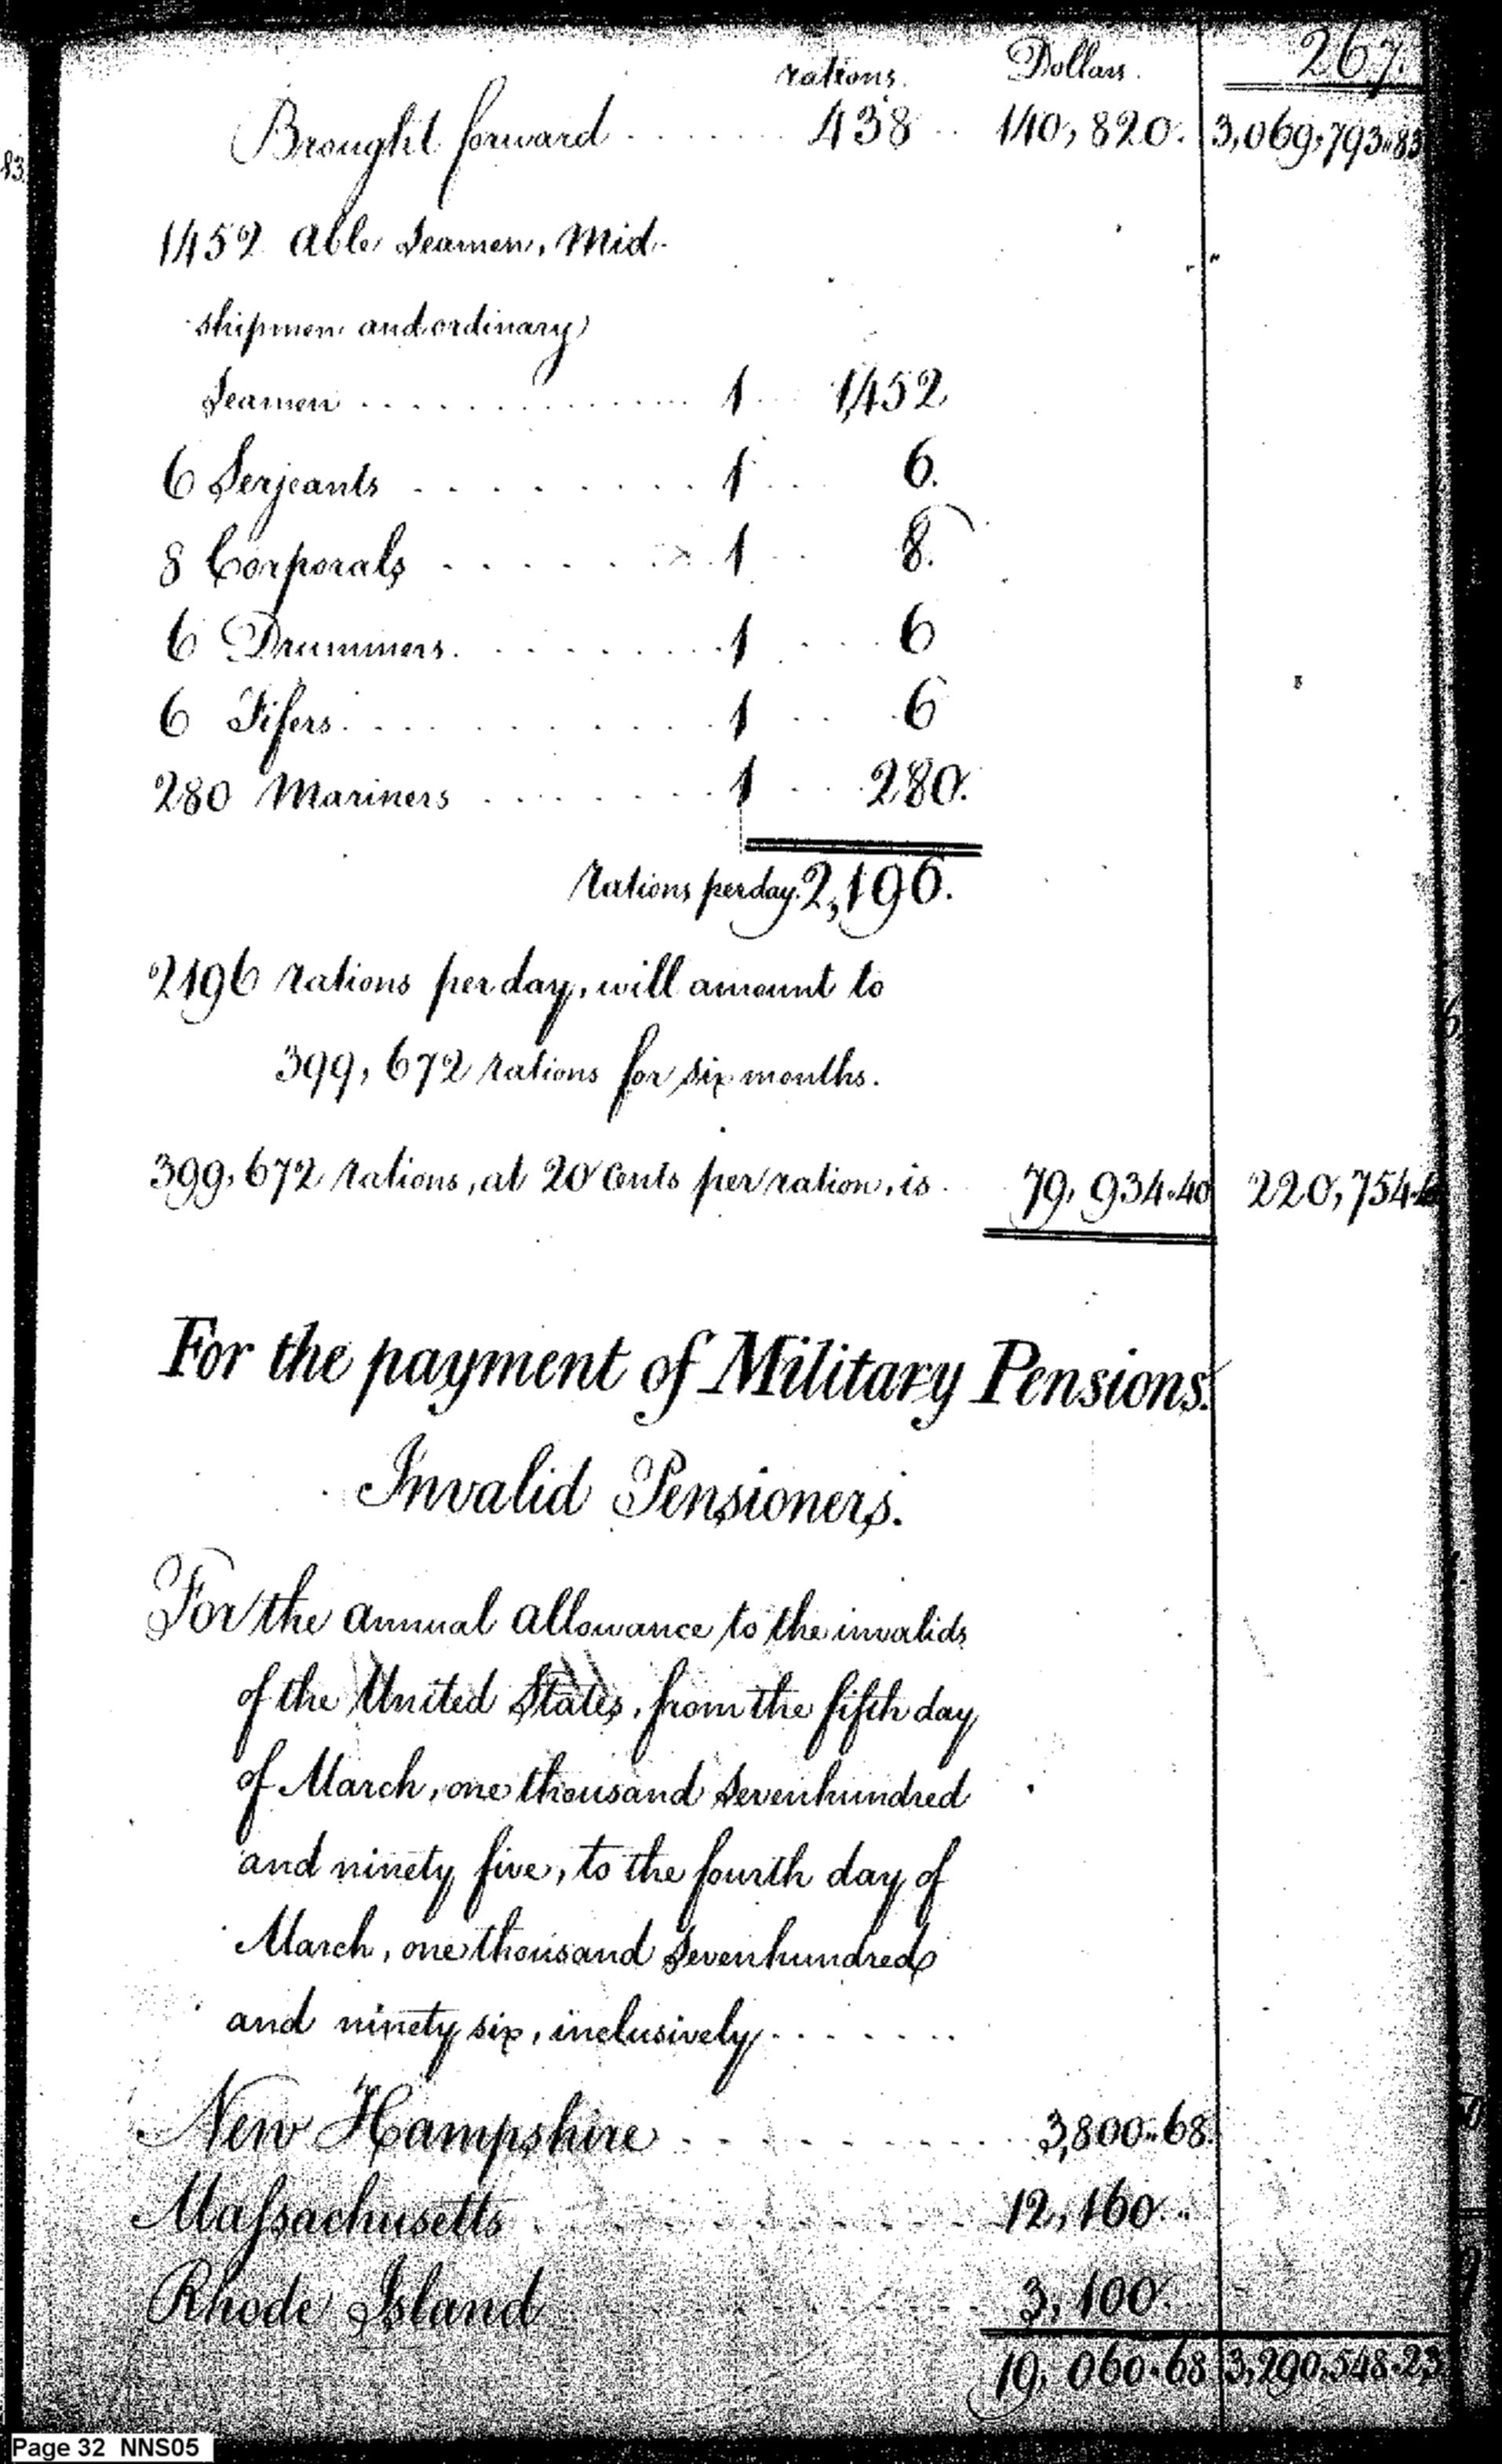 267.
rations. Dollars.
Brought forward ....... 438 .. 140,820. 3,069,793..83
83
1452 Able Seamen, Mid-
shipmen and ordinary
Seamen .............. 1 ... 1,452
6 Serjeants ......... 1 ... 6.
8 Corporals ........ 1 ... 8.
6 Drummers ......... 1 .... 6
6 Fifers ............ 1 .... 6
280 Mariners ........ 1 .... 280.
rations per day. 2,196.
2196 rations per day, will amount to
399,672 rations for six months.
399,672 rations, at 20 Cents per ration, is . 79,934.40 220,754.
For the payment of Military Pensions.
Invalid Pensioners.
For the annual allowance to the invalids
of the United States, from the fifth day
of March, one thousand Sevenhundred
and ninety five, to the fourth day of
March, one thousand Sevenhundred
and ninety six, inclusively .......
New Hampshire .......... 3,800..68.
Massachusetts .......... 12,160..
Rhode Island .......... 3,100.
19,060.68 3,290,548.23
Page 32 NNS05